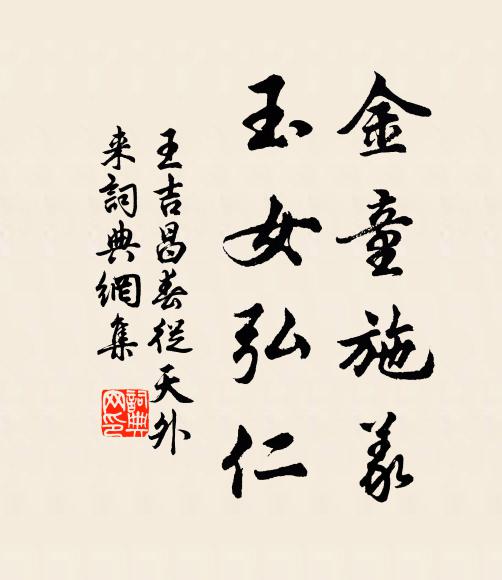 金童施義
玉女弘仁
王吉昌春從天外
来詞典網集
詞典
网印